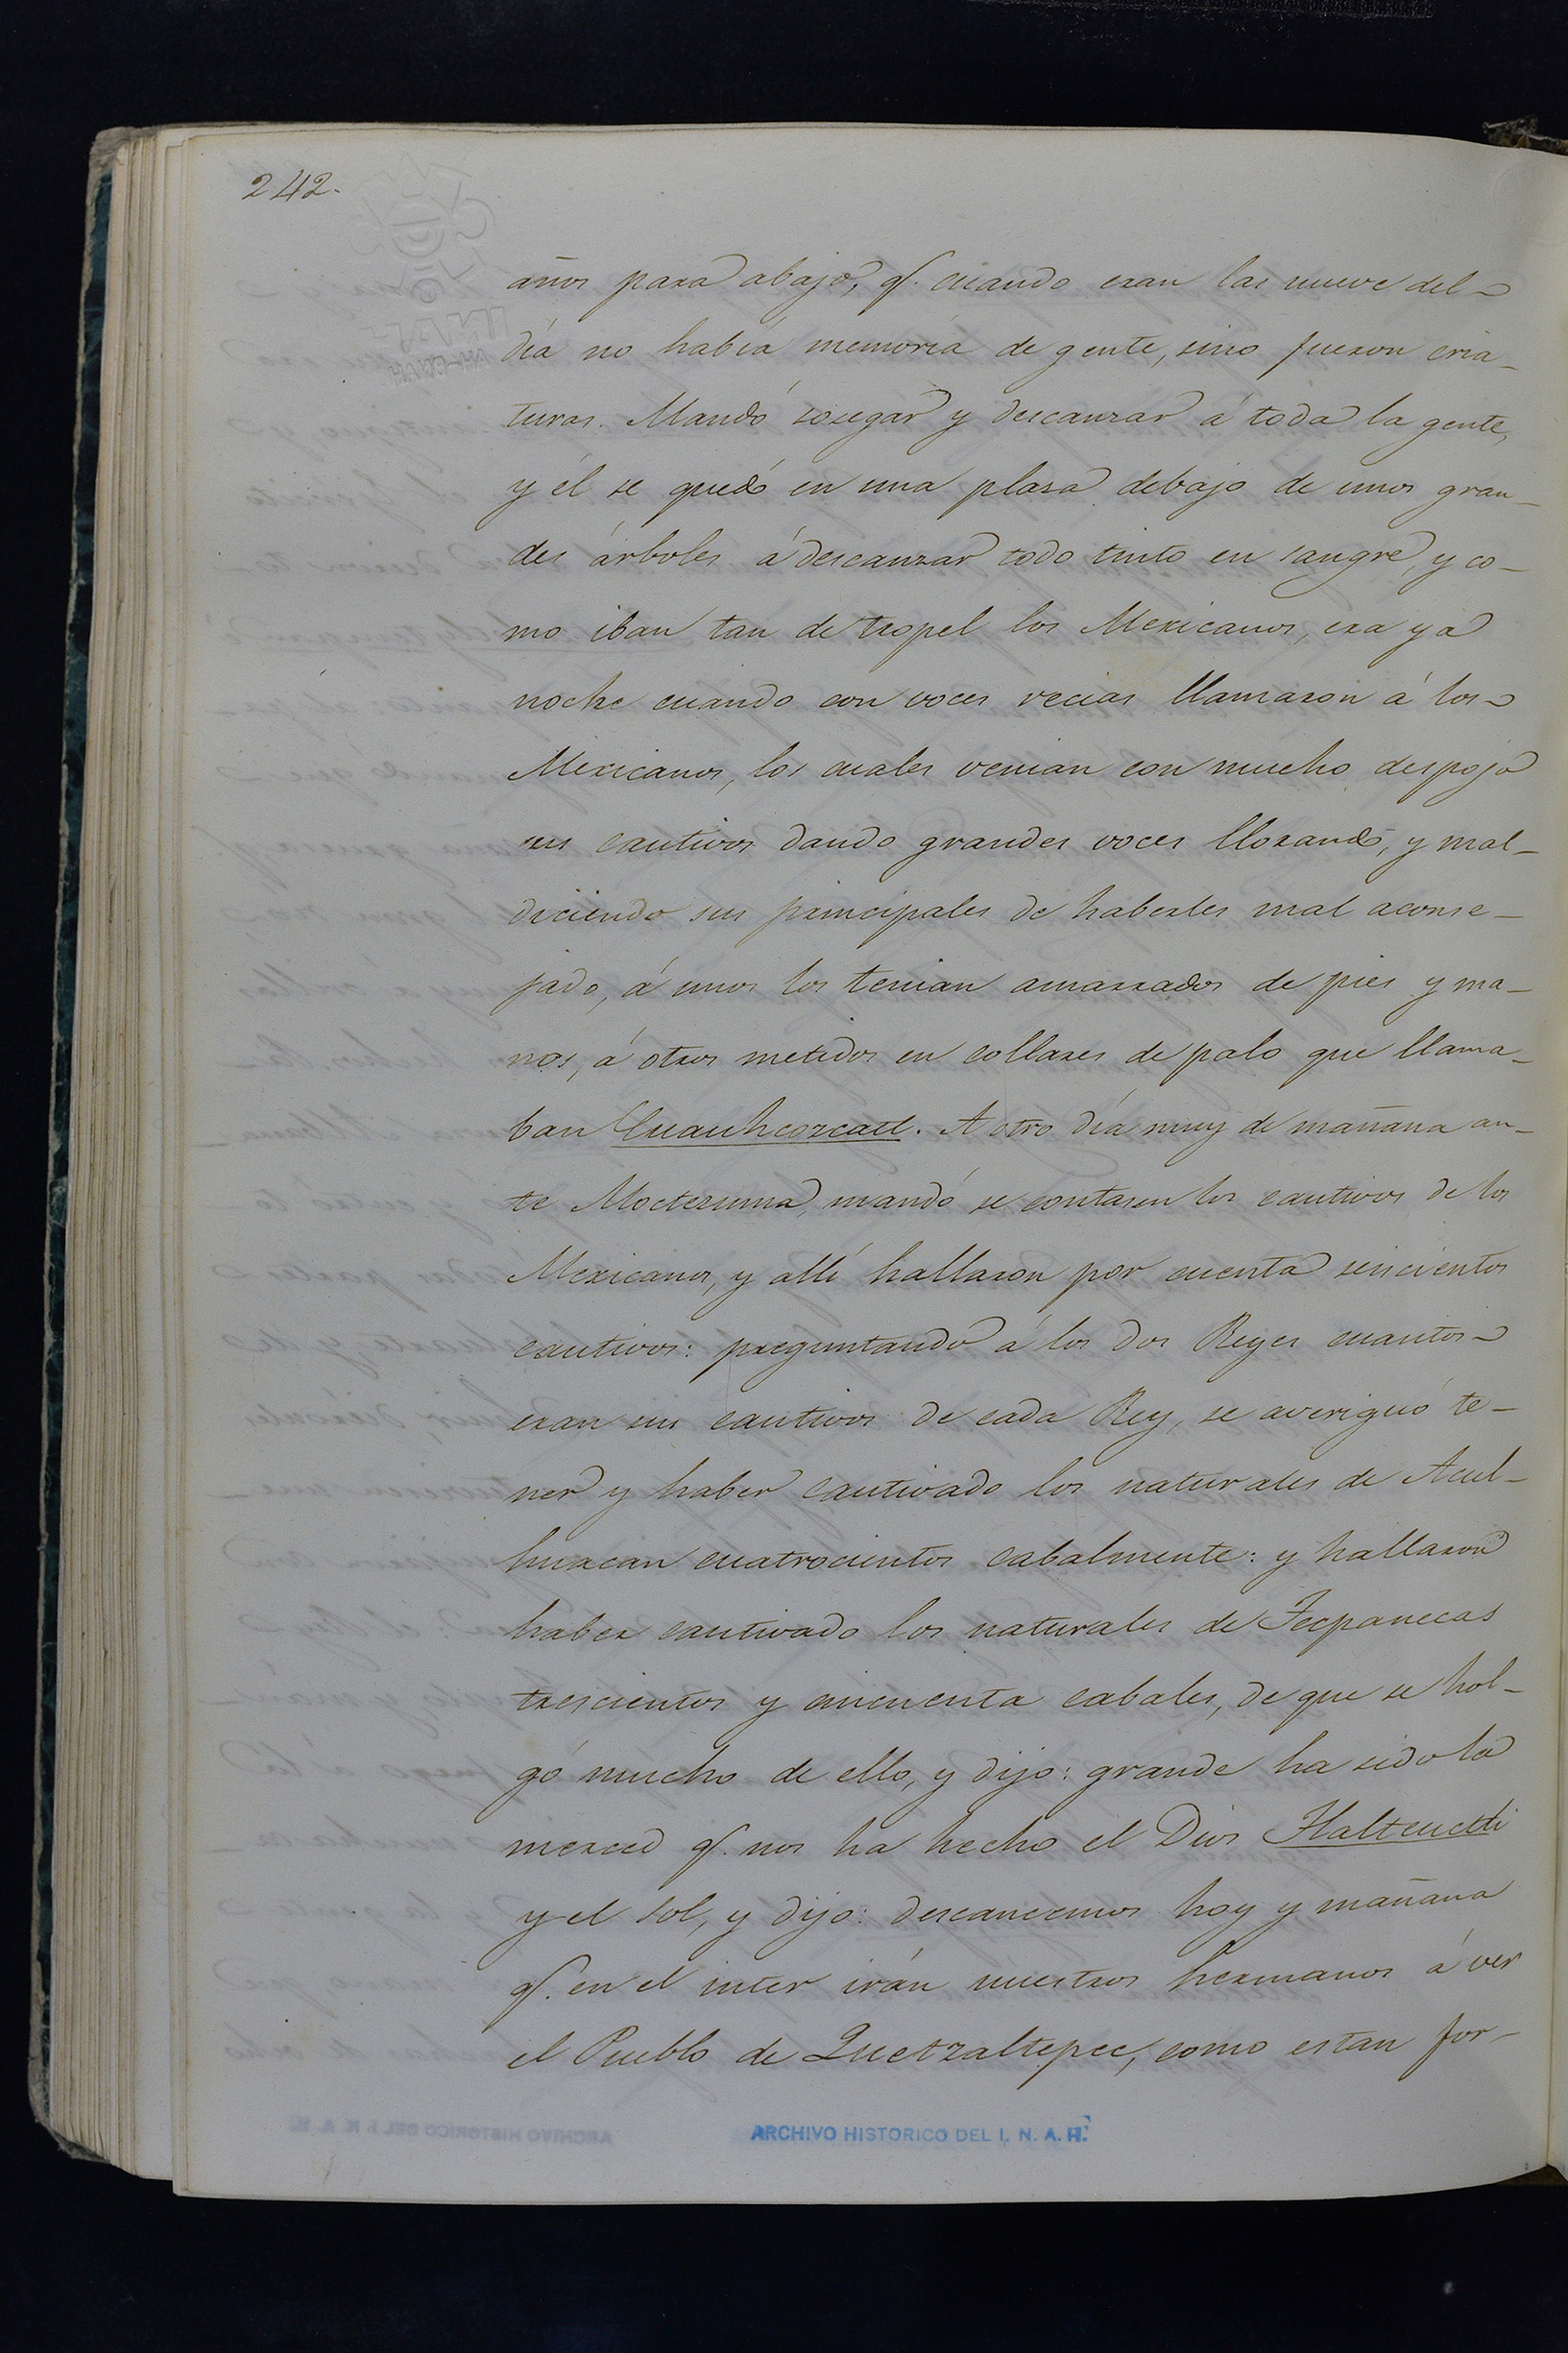 242.
años para abajo, q.e cuando eran las nueve del
día no había memoria de gente, sino fueron cria-
turas. Mandó sosegar y descanzar á toda la gente,
y él se quedó en una plasa debajo de unos gran-
des árboles á descanzar todo tinto en sangre, y co-
mo iban tan de tropel los Mexicanos, era ya
noche cuando con voces recias llamaron á los
Mexicanos, los cuales venian con mucho despojo
sus cautivos dando grandes voces llorando, y mal-
diciendo sus principales de haberles mal aconse-
jado, á unos los tenian amarrados de pies y ma-
nos, á otros metidos en collares de palo que llama-
ban Cuauhcozcatl. A otro día muy de mañana an-
te Moctezuma, mandó se contasen los cautivos de los
Mexicanos, y allí hallaron por cuenta seiscientos
cautivos: preguntando á los dos Reyes cuantos
eran sus cautivos de cada Rey, se averiguó te-
ner y haber cautivado los naturales de Acul-
huacan cuatrocientos cabalmente: y hallaron
haber cautivado los naturales de Tecpanecas
trescientos y cincuenta cabales, de que se hol-
gó mucho de ello, y dijo: grande ha sido la
merced q.e nos ha hecho el Dios Tlalteuctli
y el sol, y dijo: descancemos hoy y mañana
q.e en el inter irán nuestros hermanos á ver
el Pueblo de Quetzaltepec, como estan for-
ARCHIVO HISTORICO DEL I. N. A. H.